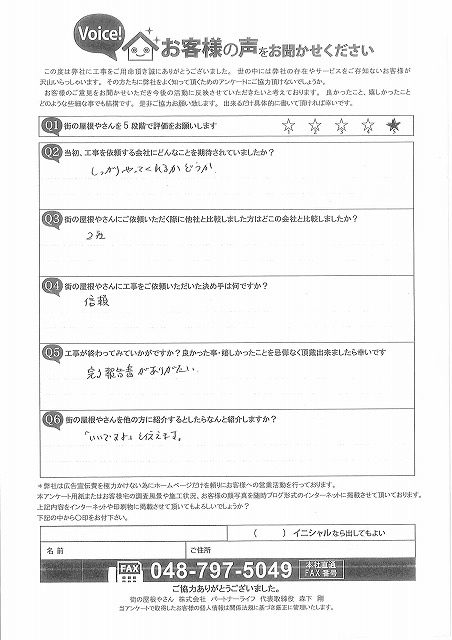 Voice!
お客様の声をお聞かせください
この度は弊社に工事をご用命頂き誠にありがとうございました。 世の中には弊社の存在やサービスをご存知ないお客様が
沢山いらっしゃいます。 その方たちに弊社をよく知って頂くためのアンケートにご協力頂けないでしょうか。
お客様のご意見をお聞かせいただき今後の活動に反映させていただきたいと考えております。 良かったこと、嬉しかったこと
どのような些細な事でも結構です。 是非ご協力お願い致します。 出来るだけ具体的に書いて頂ければ幸いです。
Q1 街の屋根やさんを5段階で評価をお願いします ☆ ☆ ☆ ☆ ★
Q2 当初、工事を依頼する会社にどんなことを期待されていましたか?
しっかりやってくれるかどうか
Q3 街の屋根やさんにご依頼いただく際に他社と比較しました方はどこの会社と比較しましたか?
2社
Q4 街の屋根やさんに工事をご依頼いただいた決め手は何ですか?
信頼
Q5 工事が終わってみていかがですか?良かった事・嬉しかったことを忌憚なく頂戴出来ましたら幸いです
完了報告書がありがたい
Q6 街の屋根やさんを他の方に紹介するとしたらなんと紹介しますか?
「いいですよ」と伝えます。
*弊社は広告宣伝費を極力かけない為にホームページだけを頼りにお客様への営業活動を行っております。
本アンケート用紙またはお客様宅の調査風景や施工状況、お客様の顔写真を随時ブログ形式のインターネットに掲載させて頂いております。
上記内容をインターネットや印刷物に掲載させて頂いてもよろしいでしょうか?
下記の中から○印をお付下さい。
( ) イニシャルなら出してもよい
名前
ご住所
FAX 048-797-5049 本社直通 FAX番号
ご協力ありがとうございました。
街の屋根やさん 株式会社 パートナーライフ 代表取締役 森下 剛
当アンケートで取得したお客様の個人情報は関係法規に基づき厳正に管理いたします。